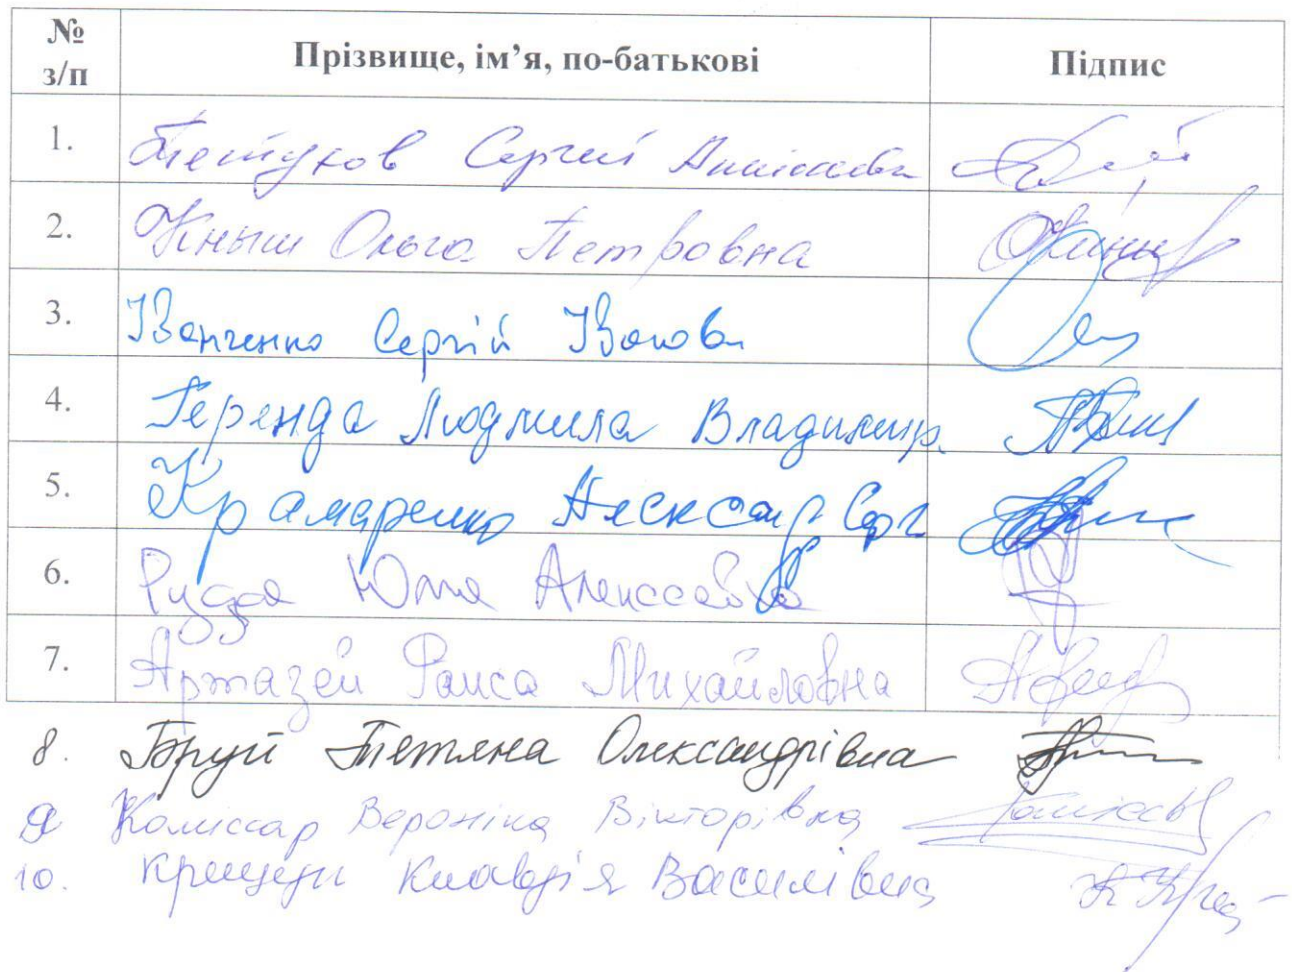 № з/п Прізвище, ім’я, по-батькові Підпис
1. Сергей
2. Кныш Ольга Петровна
3. Іванченко Сергій Іванов
4. Геренда Людмила Владимир
5. Крамаренко Александр Серг
6. Рудая Юлия Алексеевна
7. Артазей Раиса Михайловна
8. Бруй Тетяна Олександрівна
9 Комиссар Вероніка Вікторівна
10. Клавдія Василівна